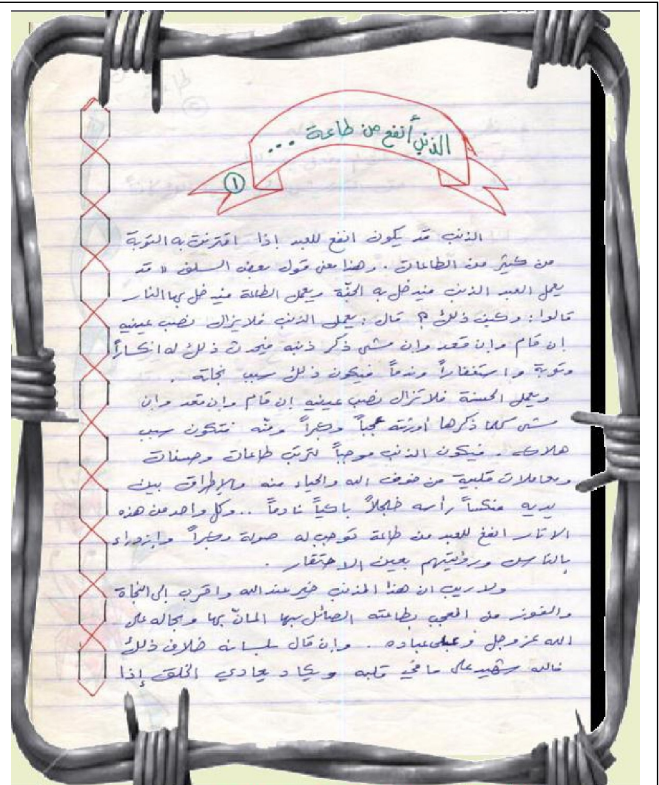 الذنب أنفع من طاعة ...
١
الذنب قد يكون انفع للعبد إذا اقترنت به التوبة
من كثير من الطاعات . وهذا معنى قول بعض السلف « قد
يعمل العبد الذنب فيدخل به الجنّة ويعمل الطاعة فيدخل بها النار
قالوا : وكيف ذلك ؟ قال : يعمل الذنب فلا يزال نصب عينيه
إن قام وإن قعد وإن مشى ذكر ذنبه فيحدث ذلك له انكساراً
وتوبة واستغفاراً وندماً فيكون ذلك سبب نجاته .
ويعمل الحسنة فلا تزال نصب عينيه إن قام وإن قعد وإن
مشى كلما ذكرها أورثته عجباً وكبراً ومنّه فتكون سبب
هلاكه . فيكون الذنب موجباً لترتب طاعات وحسنات
ومعاملات قلبية من خوف الله والحياء منه والإطراق بين
يديه منكساً رأسه خجلاً باكياً نادماً .. وكل واحد من هذه
الاثار انفع للعبد من طاعة توجب له صولة وكبراً وازدراء
بالناس ورؤيتهم بعين الاحتقار .
ولا ريب ان هذا المذنب خير عند الله واقرب إلى النجاة
والفوز من المعجب بطاعته الصائل بها المانّ بها وبحاله على
الله عز وجل وعلى عباده . وإن قال بلسانه خلاف ذلك
فالله شهيد على ما في قلبه ويكاد يعادي الخلق إذا